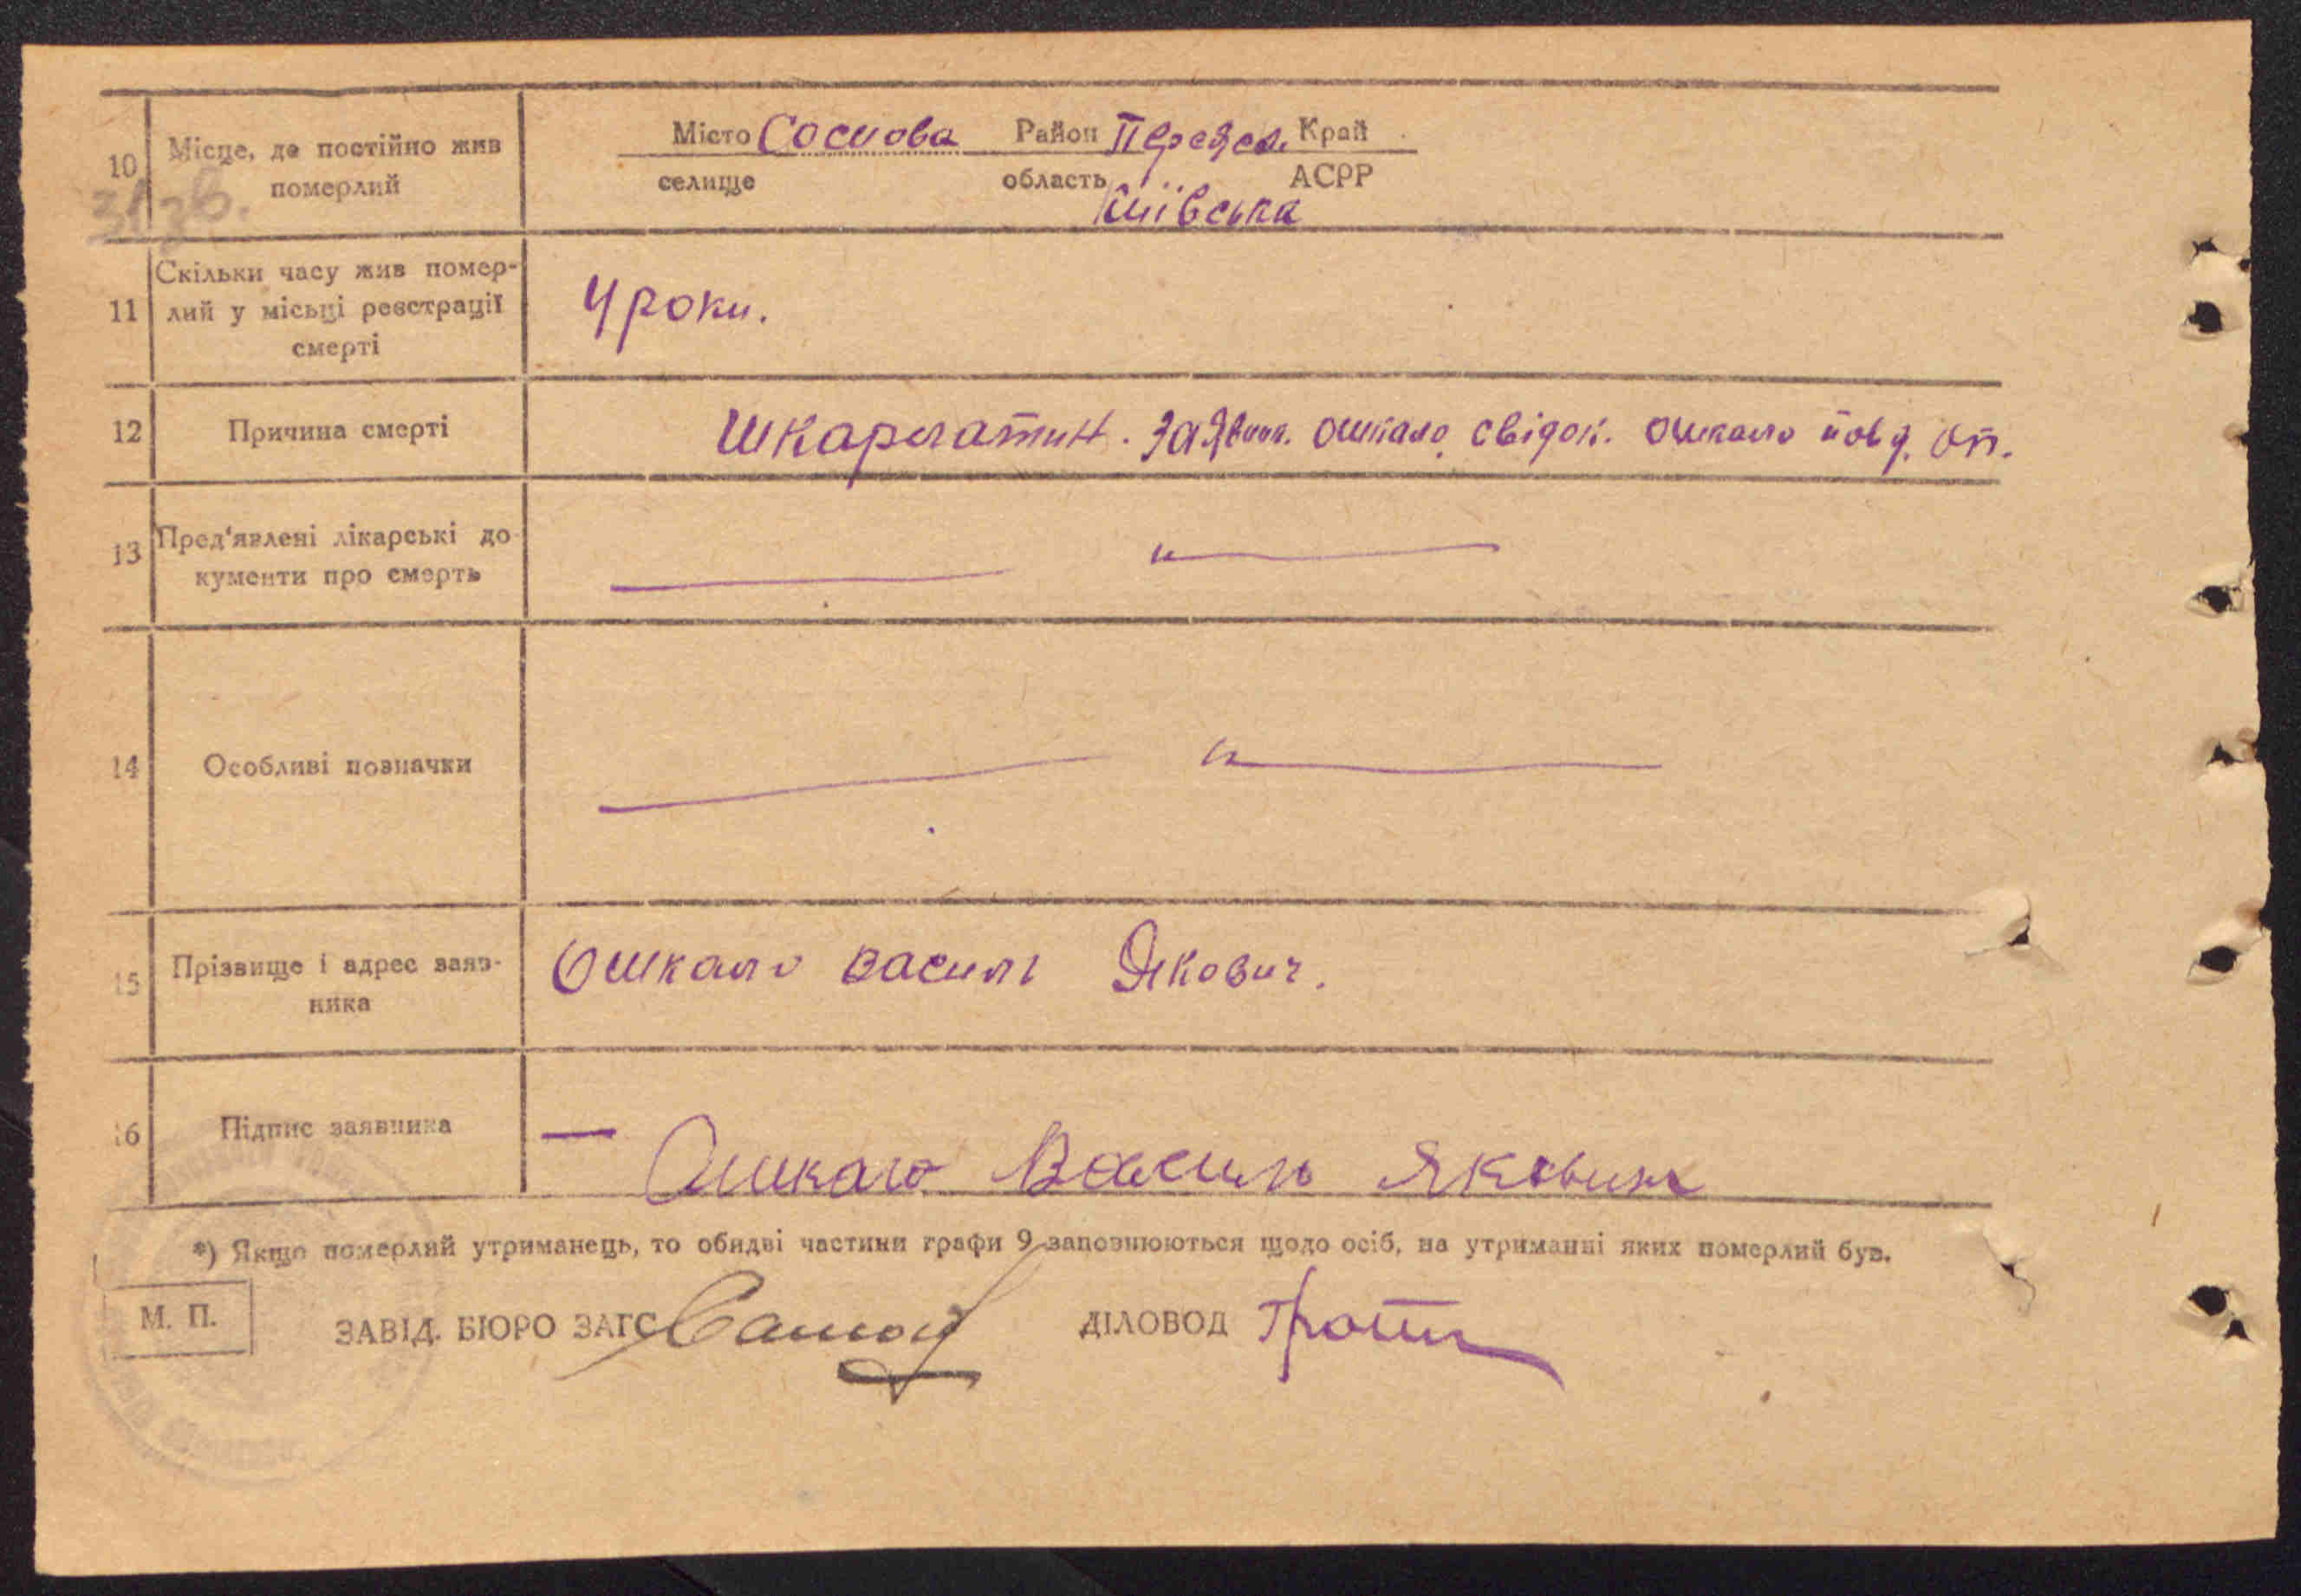 10 Місце, де постійно жив Місто Соснова Район Переясл. Край
померлий селище область АСРР
31зв. Київська
Скільки часу жив помер-
11 лий у місьці реєстрації 4 роки.
смерті
12 Причина смерті Шкарлатин. Заявник. Ошкало, свідок. Ошкало
13 Пред'явлені лікарські до
кументи про смерть — " —
14 Особливі позначки — " —
15 Прізвище і адрес заяв- Ошкало Василь Якович.
ника
16 Підпис заявника — Ошкало Василь Якович
*) Якщо померлий утриманець, то обидві частини графи 9 заповнюються щодо осіб, на утриманні яких померлий був.
М. П. ЗАВІД. БЮРО ЗАГС ДІЛОВОД